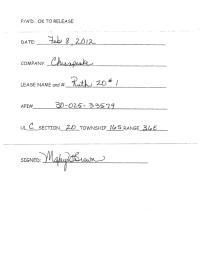 P/A'D. OK TO RELEASE
DATE: Feb 8, 2012
COMPANY: Chesapeake
LEASE NAME and #: Ruth 20 #1
API# 30-025-33579
UL C SECTION 20 TOWNSHIP 16S RANGE 36E
SIGNED: Brown